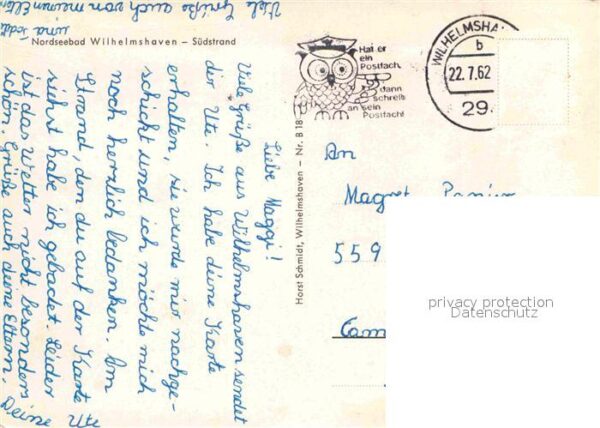 Nordseebad Wilhelmshaven – Südstrand
Liebe Maggi!
Viele Grüße aus Wilhelmshaven sendet
dir Ute. Ich habe deine Karte
erhalten, sie wurde mir nachge-
schickt und ich möchte mich
noch herzlich bedanken. Am
Strand, den du auf der Karte
siehst habe ich gebadet. Leider
ist das Wetter nicht besonders
schön. Grüße auch deine Eltern.
Deine Ute
Viele Grüße auch von meinen Eltern
und
Horst Schmidt, Wilhelmshaven – Nr. B 18
Hat er
ein
Postfach,
dann
schreib
an sein
Postfach!
WILHELMSHA
b
22.7.62
29.
An
Magret
559
privacy protection
Datenschutz